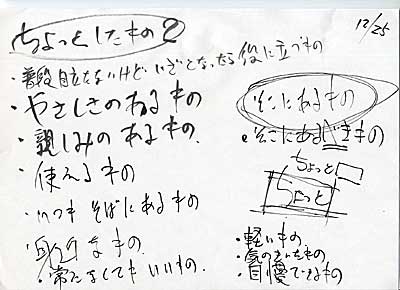 ちょっとしたもの2
12/25
・普段目立たないけど、いざとなったら役に立つもの
・やさしさのあるもの
・親しみのあるもの
・使えるもの
・いつもそばにあるもの
身近なもの
・常になくてもいいもの。
そこにあるもの
・そこにあるべきもの
ちょっと
ちょっと
・軽いもの
・気のきいたもの
・自慢できるもの